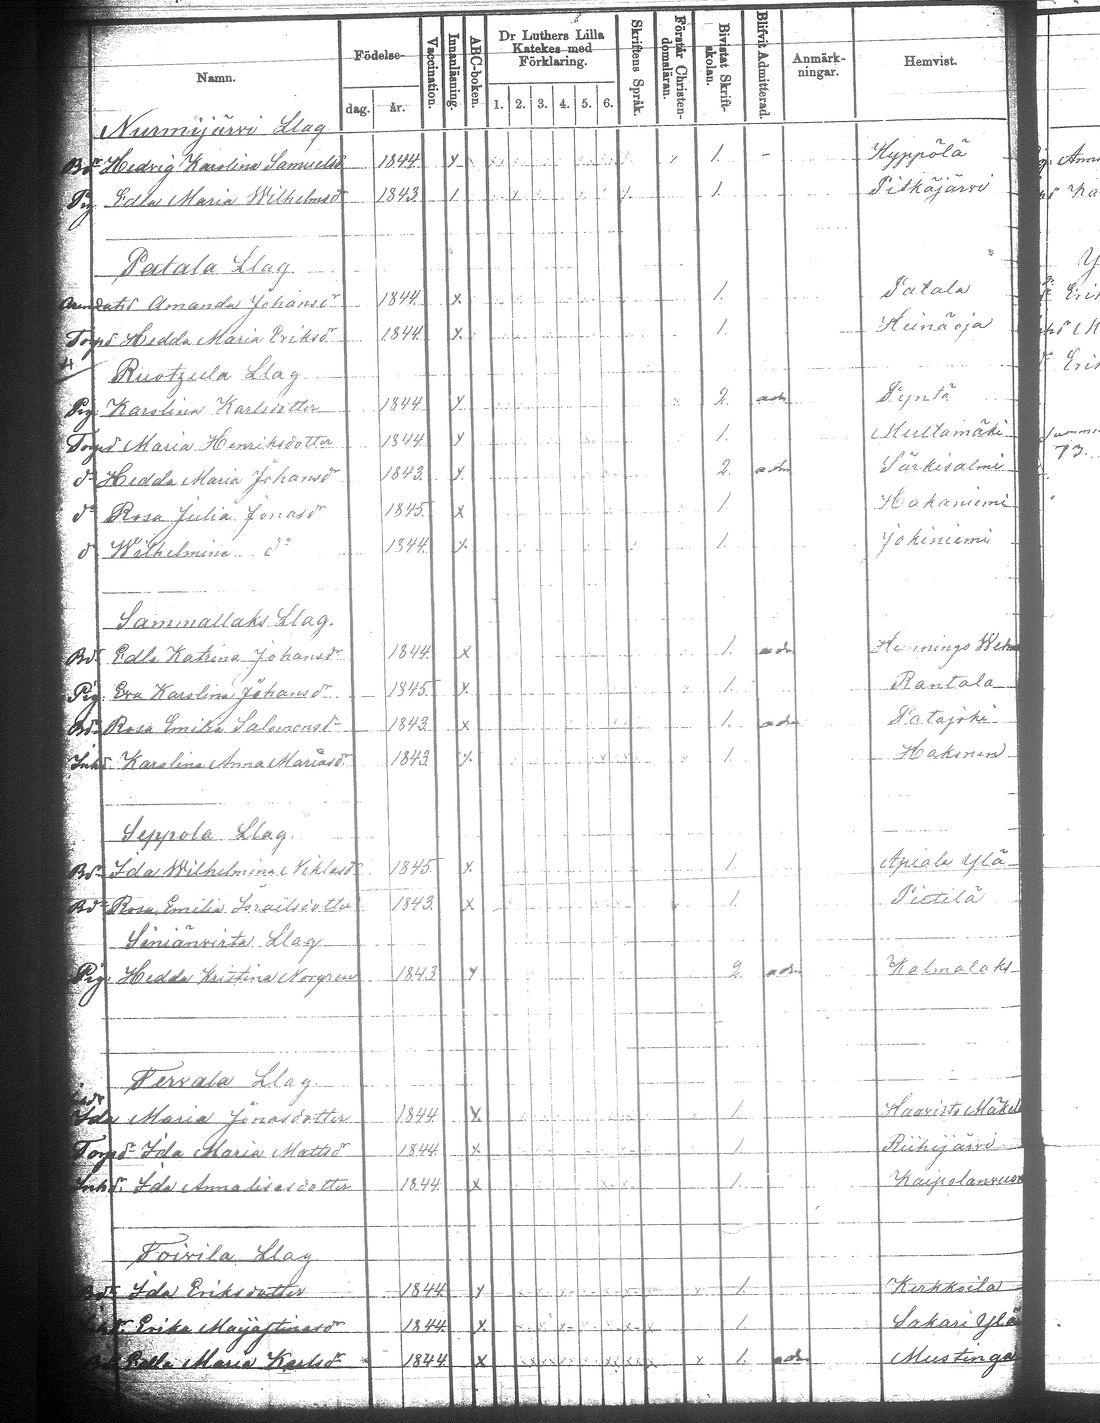 Namn. Födelse- dag. år. Vaccination. Innanläsning. ABC-boken. Dr Luthers Lilla Katekes med Förklaring. 1. 2. 3. 4. 5. 6. Skriftens Språk. Förstår Christendomsläran. Bivistat Skriftskolan. Blifvit Admitterad. Anmärkningar. Hemvist.
Nurmijärvi Llag
Bdr Hedvig Karolina Samuelsdr 1844 x 1. - Hyppölä
Pig Edla Maria Wilhelmsdr 1843 1. Pitkäjärvi
Patala Llag
Amanda Johansdr 1844 x 1. Patala
Torpdr Hedda Maria Eriksdr 1844 x 1. Heinäoja
Ruotzula Llag
Pig. Karolina Karlsdotter 1844 x 2. adm Pyntä
Torpdr Maria Henriksdotter 1844 x 1. Multamäki
do Hedda Maria Johansdr 1843 x 2. adm Särkisalmi
do Rosa Julia Jonasdr 1845 x 1. Hakaniemi
do Wilhelmina do 1844 x 1. Jokiniemi
Sammallaks Llag.
Bdr Edla Katrina Johansdr 1844 x 1. adm Hemmings
Pig. Eva Karolina Johansdr 1845 x 1. Rantala
Bdr Rosa Emilia Salomonsdr 1843 x 1. adm Patajoki
Inhdr Karolina Anna Mariasdr 1843 x 1. Hakonen
Seppola Llag.
Bdr Ida Wilhelmina Niklasdr 1845 x 1. Apiala Ylä
Bdr Rosa Emilia Israelsdotter 1843 x 1. Pietilä
Siniänvirta Llag
Pig. Hedda Kristina Norgren 1843 x 2. adm Kalmalaks
Tervala Llag.
Ida Maria Jonasdotter 1844 x 1. Haavisto Mäkelä
Torpdr Ida Maria Mattsdr 1844 x 1. Riihijärvi
Inhdr. Ida Annalisasdotter 1844 x 1. Kaipolanvuori
Toivila Llag
Ida Eriksdotter 1844 x 1. Kirkkoila
Erika Majastinasdr 1844 x 1. Sakari Ylä
Maria Karlsdr 1844 x 1. adm Mustinga